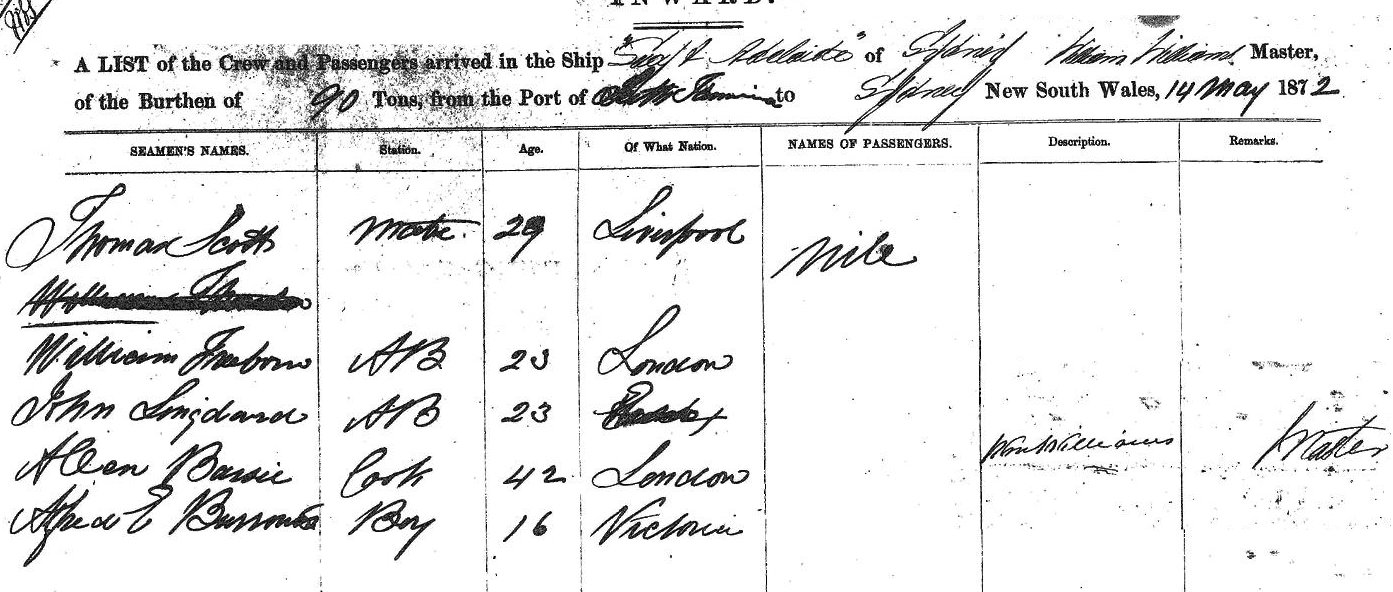 INWARD.
A LIST of the Crew and Passengers arrived in the Ship " Adelaide" of Sydney William Williams Master,
of the Burthen of 90 Tons, from the Port of to Sydney New South Wales, 14 May 1872
SEAMEN'S NAMES. Station. Age. Of What Nation. NAMES OF PASSENGERS. Description. Remarks.
Thomas Scott Mate. 29 Liverpool Nile
William Freeborn AB 23 London
John Lingdard AB 23
Wm Williams Master
Allen Bassie Cook 42 London
Alfred E Burrows Boy 16 Victoria